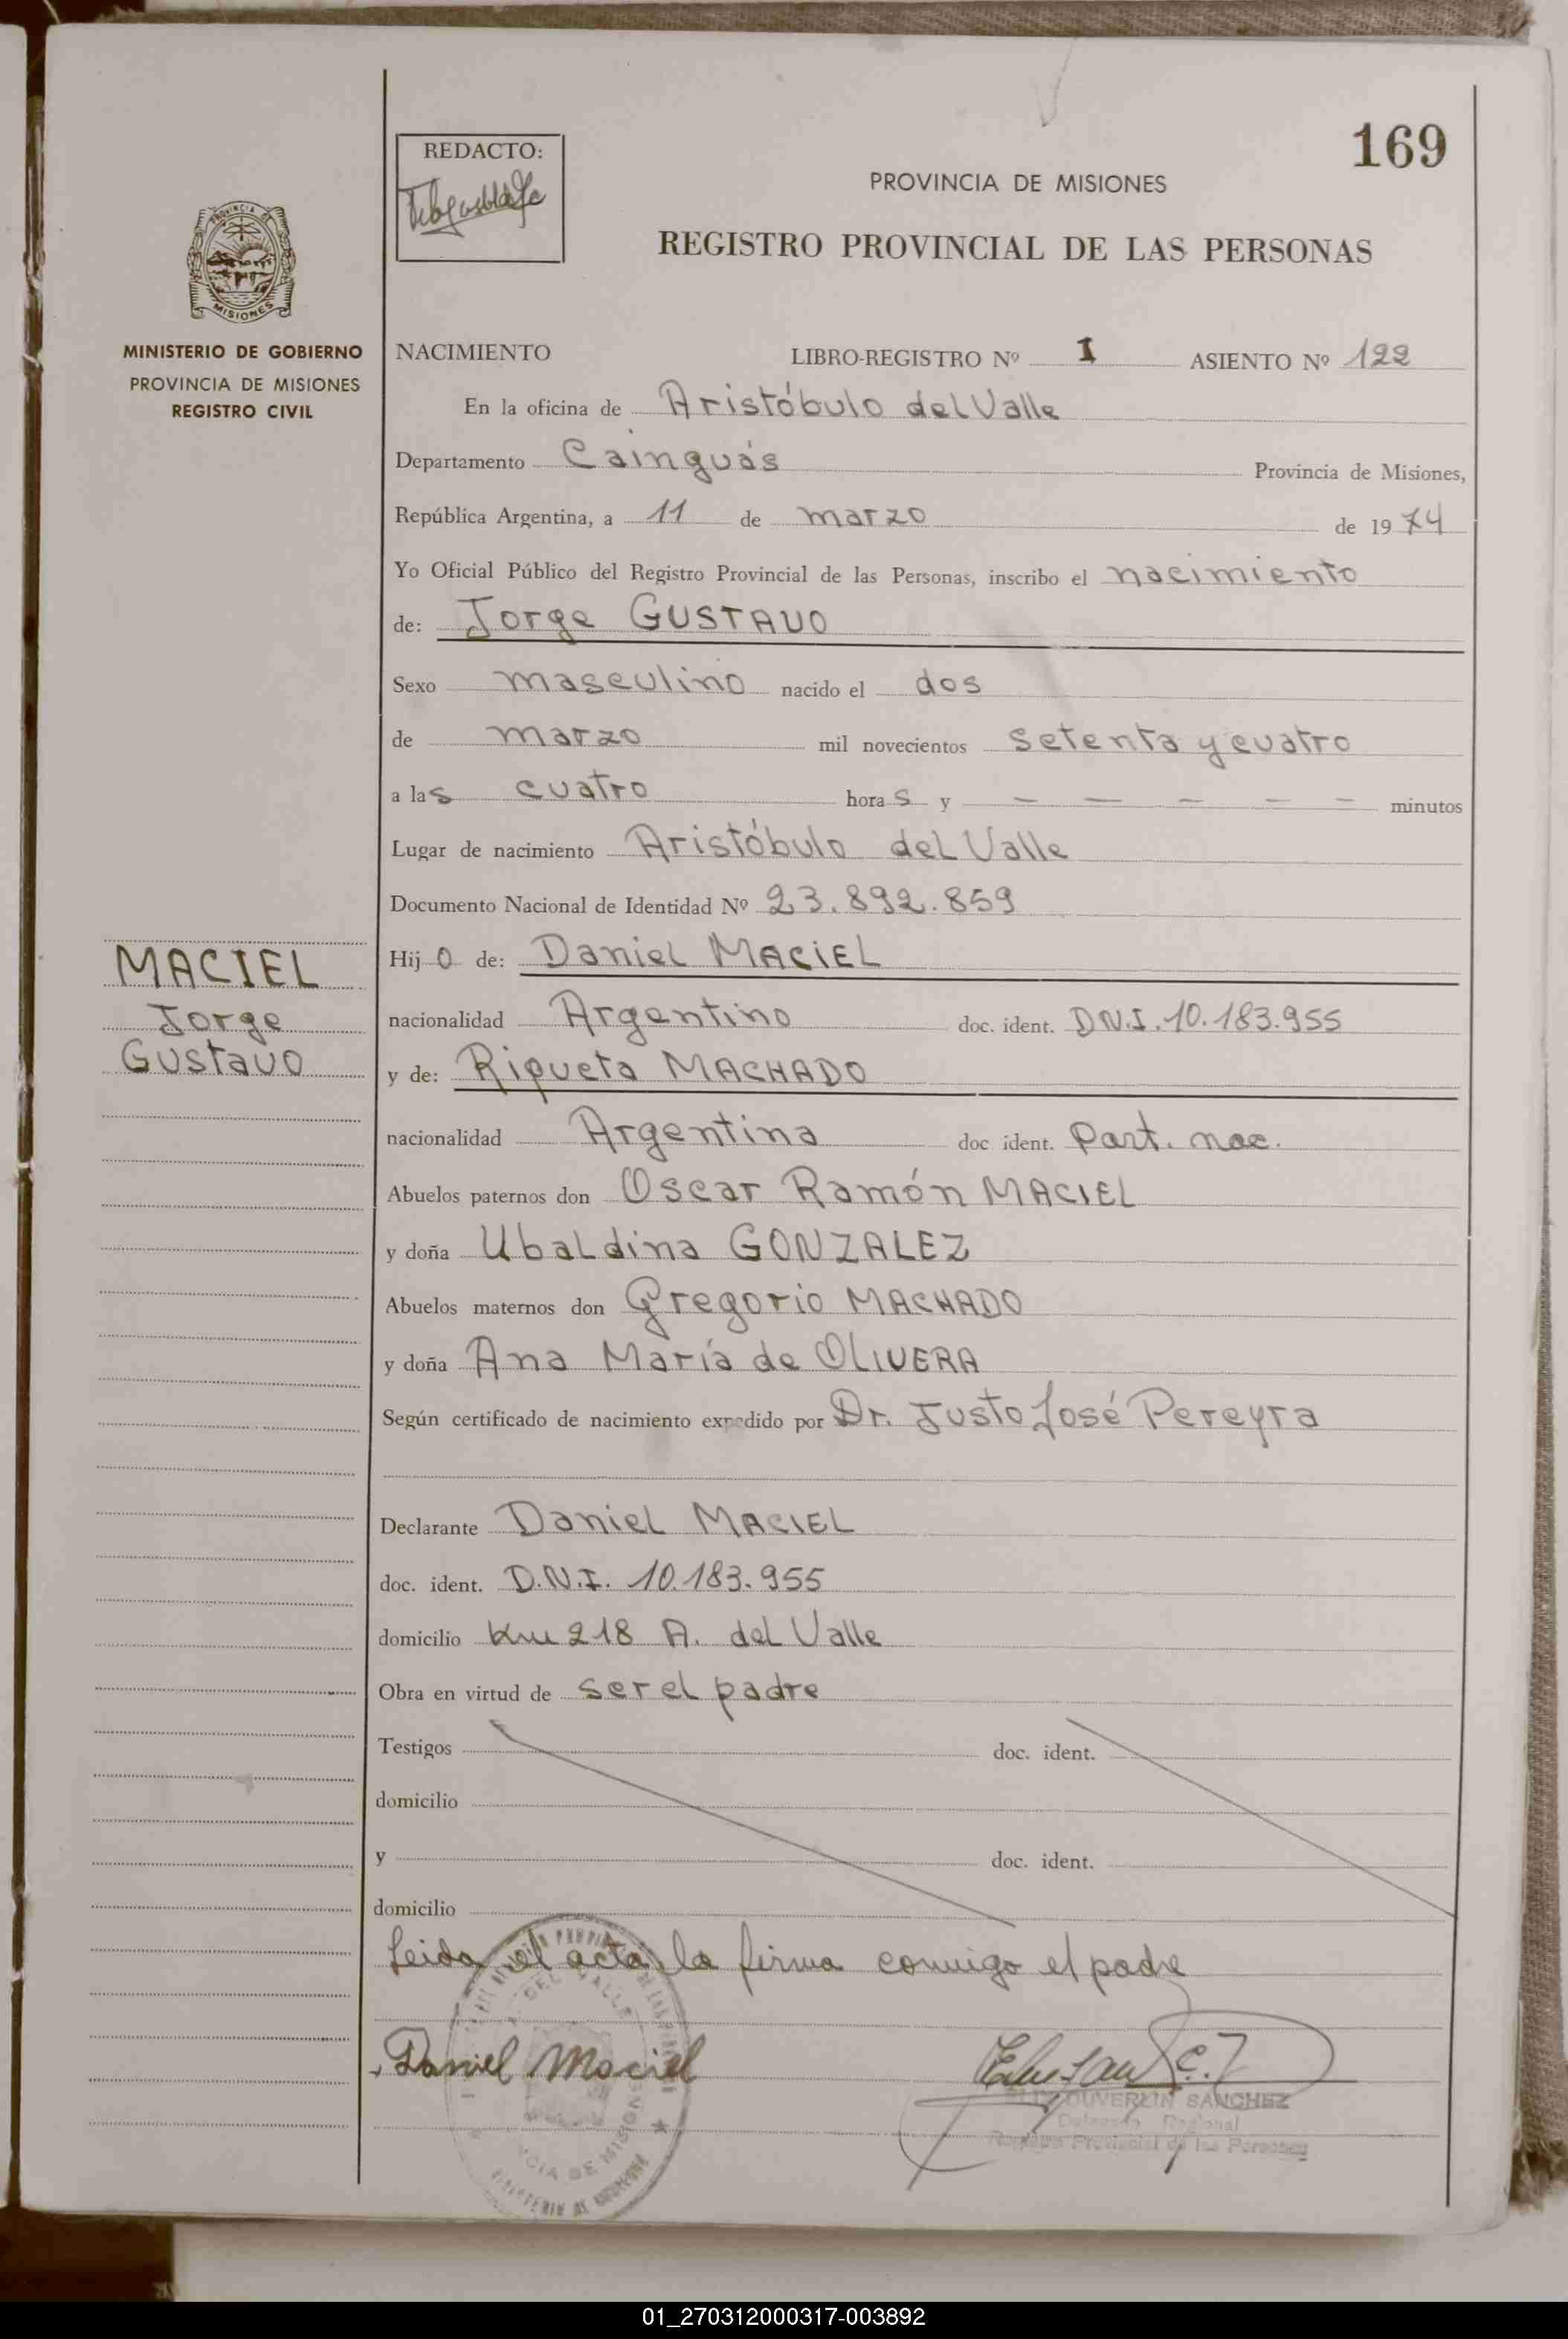 169
REDACTO:
PROVINCIA DE MISIONES
REGISTRO PROVINCIAL DE LAS PERSONAS
PROVINCIA DE
MISIONES
MINISTERIO DE GOBIERNO
PROVINCIA DE MISIONES
REGISTRO CIVIL
NACIMIENTO LIBRO-REGISTRO Nº 1 ASIENTO Nº 122
En la oficina de Aristóbulo del Valle
Departamento Cainguás Provincia de Misiones,
República Argentina, a 11 de marzo de 1974
Yo Oficial Público del Registro Provincial de las Personas, inscribo el nacimiento
de: Jorge GUSTAVO
Sexo masculino nacido el dos
de marzo mil novecientos setenta y cuatro
a las cuatro horas y — — — — — minutos
Lugar de nacimiento Aristóbulo del Valle
Documento Nacional de Identidad Nº 23.892.859
MACIEL
Jorge
Gustavo
Hijo de: Daniel MACIEL
nacionalidad Argentino doc. ident. D.N.I. 10.183.955
y de: Riqueta MACHADO
nacionalidad Argentina doc ident. Part. nac.
Abuelos paternos don Oscar Ramón MACIEL
y doña Ubaldina GONZALEZ
Abuelos maternos don Gregorio MACHADO
y doña Ana María de OLIVERA
Según certificado de nacimiento expedido por Dr. Justo José Pereyra
Declarante Daniel MACIEL
doc. ident. D.N.I. 10.183.955
domicilio Km 218 A. del Valle
Obra en virtud de ser el padre
Testigos doc. ident.
domicilio
y doc. ident.
domicilio
Leida el acta, la firma conmigo el padre
Daniel Maciel
OUVERLIN SANCHEZ
Delegado Regional
Registro Provincial de las Personas
01_270312000317-003892